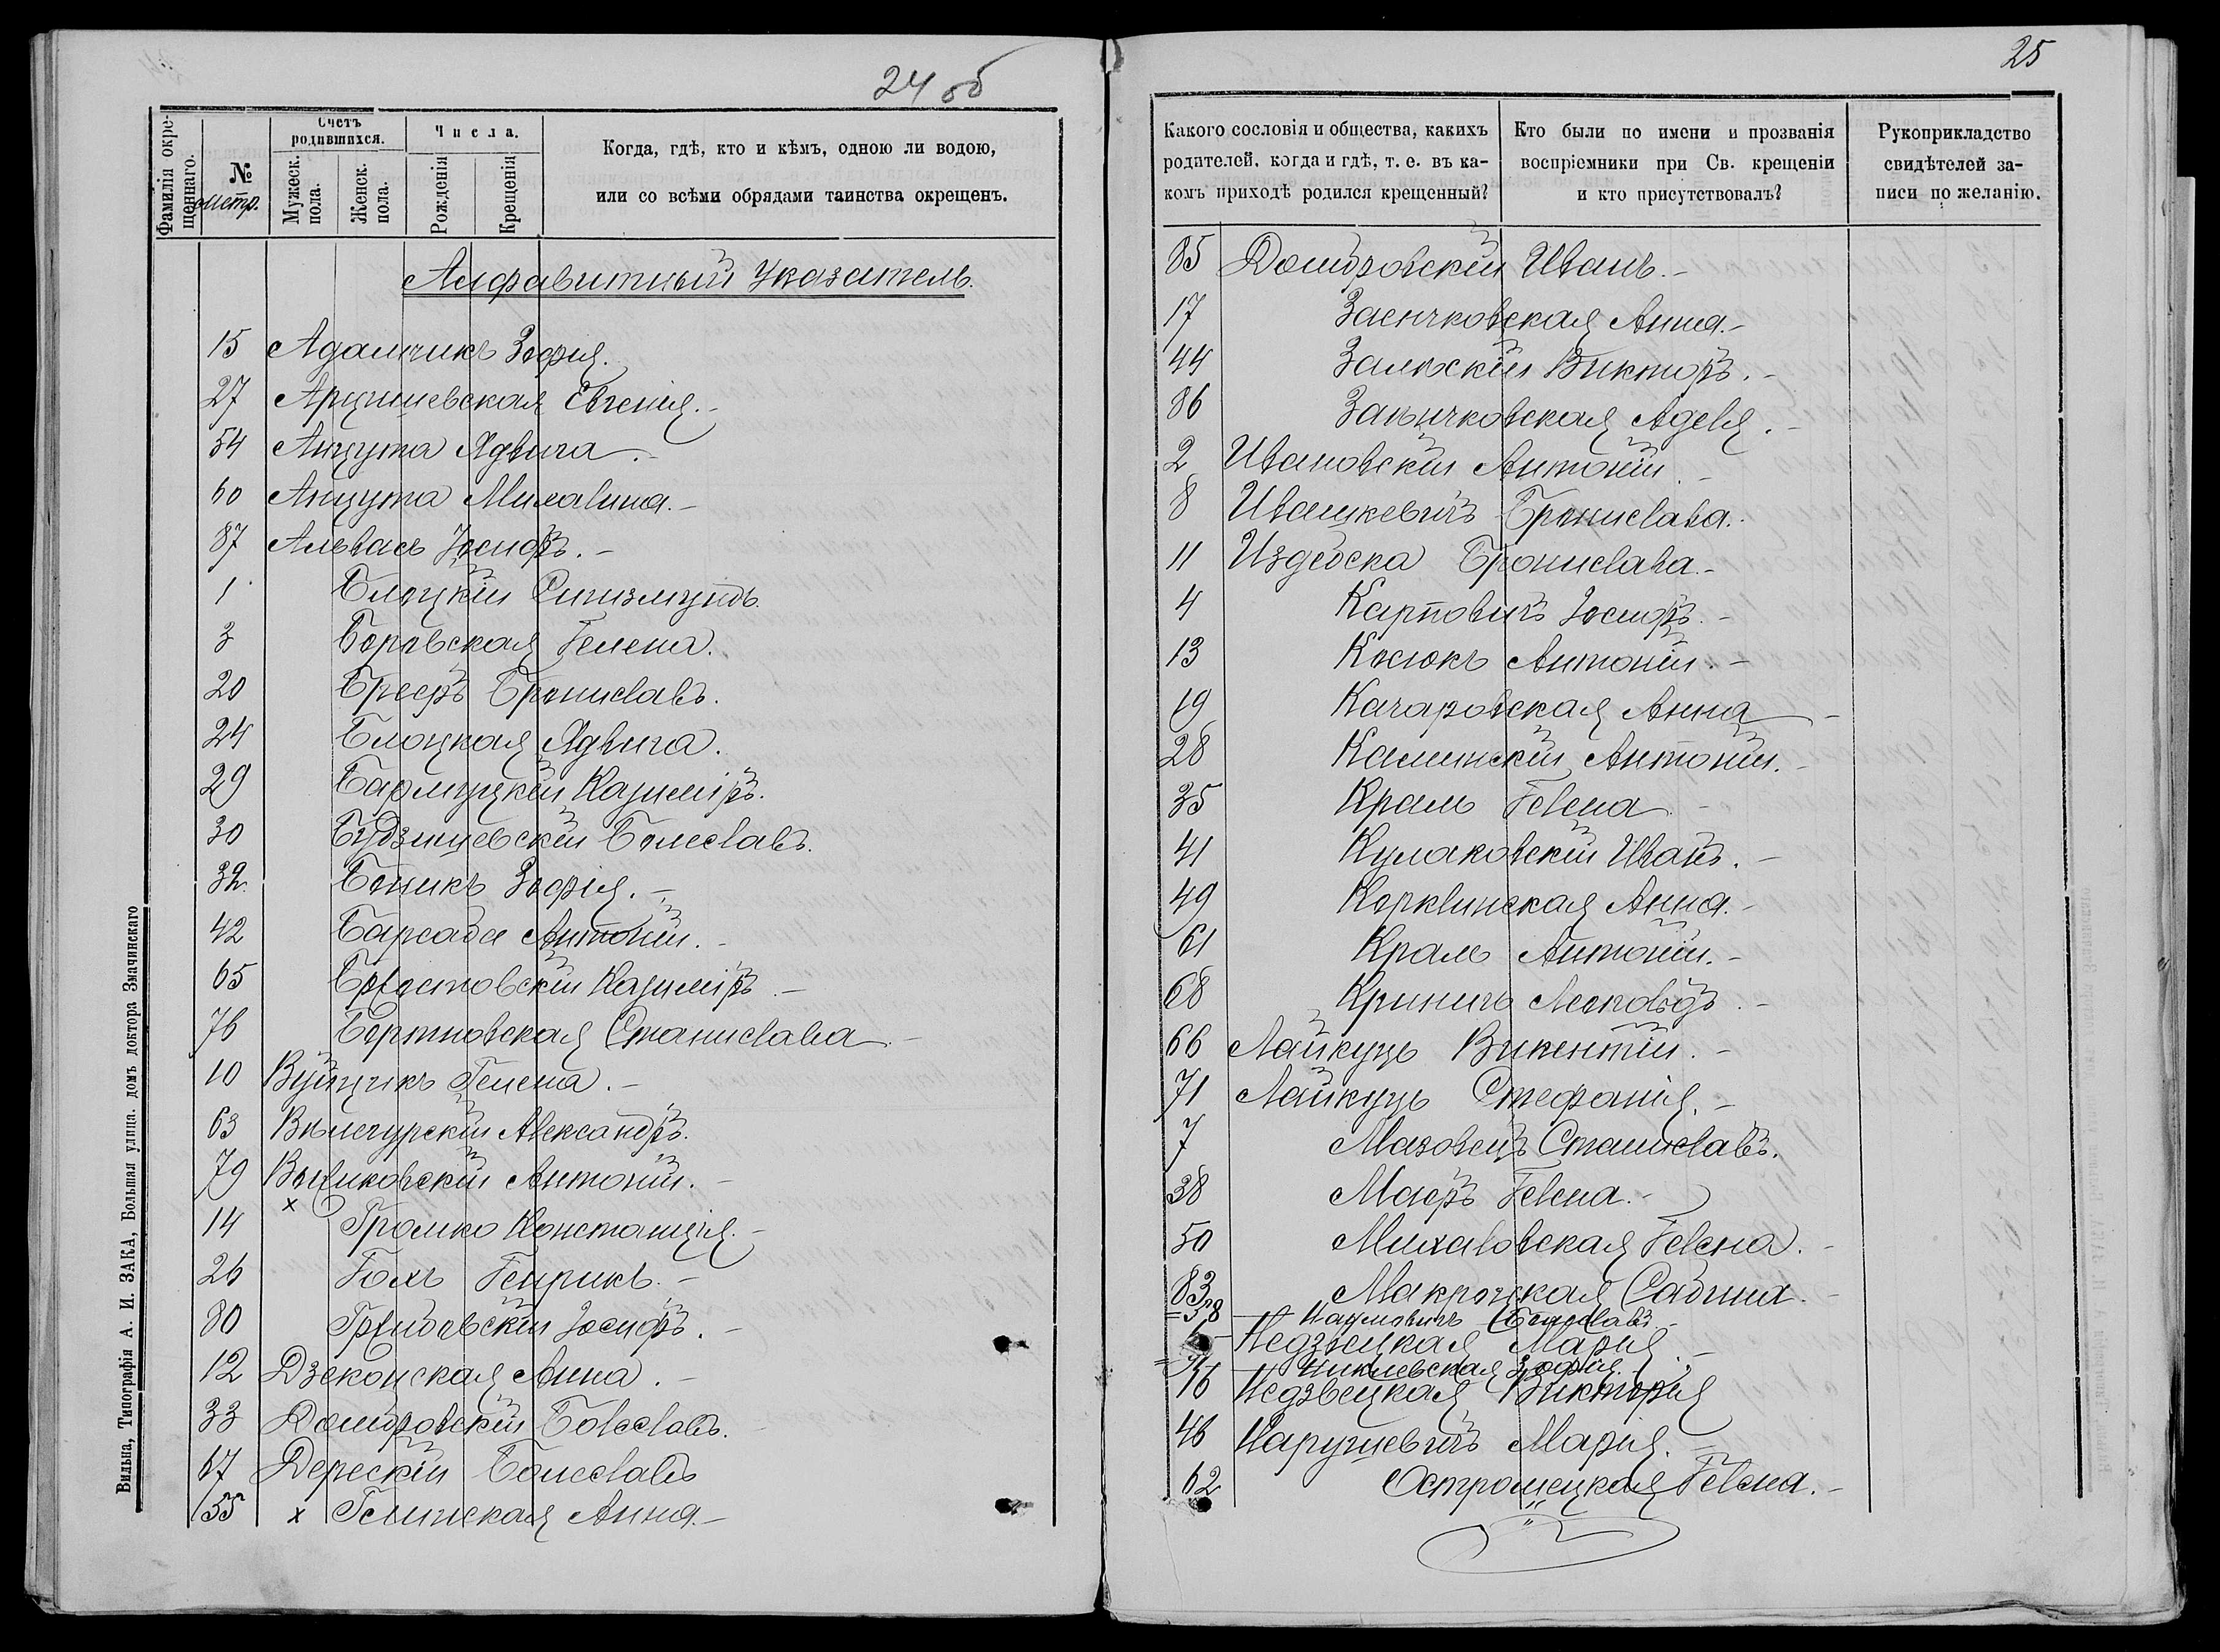 24 об
Фамилія окрещеннаго.
№ метр.
Счетъ родившихся.
Мужеск. пола.
Женск. пола.
Числа.
Рожденія
Крещенія
Когда, гдѣ, кто и кѣмъ, одною ли водою,
или со всѣми обрядами таинства окрещенъ.
Алфавитный Указатель.
15 Адамчикъ Зофія.
27 Арцишевская Евгенія.-
54 Анцута Ядвига.-
60 Анцута Михалина.-
87 Альвасъ Іосифъ.-
1 Блоцкій Сигизмундъ.
3 Боровская Гелена.
20 Брееръ Брониславъ.
24 Блоцкая Ядвига.
29 Казиміръ.
30 Будзишевскій Болеславъ.
32. Боникъ Зофія.-
42 Барсоба Антоній.-
65 Бржостовскій Казиміръ.-
76 Бортновская Станислава.-
10 Вуйцикъ Гелена.-
63 Александръ.
79 Антоній.-
14 х Громко Констанція.-
26 Голъ Генрикъ.-
80 Гржибовскій Іосифъ.-
12 Дзеконская Анна.-
33 Домбровскій Болеславъ.
67 Дерескій Болеславъ
55 х Гелинская Анна.-
Вильна, Типографія А. И. ЗАКА, Большая улица. домъ доктора Змачинскаго
25
Какого сословія и общества, какихъ
родителей, когда и гдѣ, т. е. въ ка-
комъ приходѣ родился крещенный?
Кто были по имени и прозванія
воспріемники при Св. крещеніи
и кто присутствовалъ?
Рукоприкладство
свидѣтелей за-
писи по желанію.
85 Домбровскій Иванъ.-
17 Заенчковская Анна.-
44 Залѣскій Викторъ.-
86 Адела.-
2 Ивановскій Антоній.-
8 Ивашкевичъ Бронислава.
11 Издебска Бронислава.-
4 Карповичъ Іосифъ.-
13 Косюкъ Антоній.-
19 Качаровская Анна-
28 Калинскій Антоній.-
35 Краль Гелена-
41 Кулаковскій Иванъ.-
49 Корклинская Анна.-
61 Краль Антоній.-
68 Криничъ Леопольдъ.-
66 Лайкуцъ Викентій.-
71 Лайкуцъ Стефанія.-
7 Мазовецъ Станиславъ.
38 Маеръ Гелена.-
50 Михаловская Гелена.-
83 Макроцкая Сабина.-
=58 - Наумовичъ
Недзвецкая Марія-
- Никлевская Зофія.
16 Недзвецкая Викторія
46 Нарушевичъ Марія.
62 Остромецкая Гелена.-